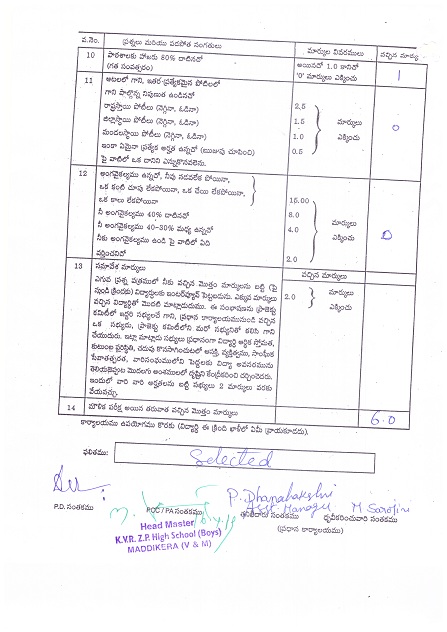 వ.నెం. ప్రశ్నలు మరియు పదపోత సంగతులు మార్కుల వివరములు వచ్చిన మార్కు
10 పాఠశాలకు హాజరు 80% దాటినచో అయినచో 1.0 కానిచో 1
(గత సంవత్సరం) '0' మార్కులు ఎక్కించు
11 ఆటలలో గాని, ఇతర ప్రత్యేకమైన పోటీలలో
గాని పాల్గొన్న నిపుణుత ఉండినచో
రాష్ట్రస్థాయి పోటీలు (నెగ్గినా, ఓడినా) 2.5
జిల్లాస్థాయి పోటీలు (నెగ్గినా, ఓడినా) 1.5 మార్కులు 0
మండలస్థాయి పోటీలు (నెగ్గినా, ఓడినా) 1.0 ఎక్కించు
ఇంకా ఏమైనా ప్రత్యేక అర్హత ఉన్నచో (ఋజువు చూపించి) 0.5
పై వాటిలో ఒక దానిని ఎన్నుకొనవలెను.
12 అంగవైకల్యము ఉన్నచో, నీవు నడవలేక పోయినా,
ఒక కంటి చూపు లేకపోయినా, ఒక చేయి లేకపోయినా,
ఒక కాలు లేకపోయినా 15.00
నీ అంగవైకల్యము 40% దాటినచో 8.0 మార్కులు
నీ అంగవైకల్యము 40-30% మధ్య ఉన్నచో 4.0 ఎక్కించు 0
నీకు అంగవైకల్యము ఉండి పై వాటిలో ఏది
వర్తించనిచో 2.0
13 సమావేశ మార్కులు వచ్చిన మార్కులు
ఎగువ ప్రశ్న పత్రములో నీకు వచ్చిన మొత్తం మార్కులను బట్టి (పై
నుండి క్రిందకు) విద్యార్థులకు ఇంటర్వ్యూన్ పెట్టబడును. ఎక్కువ మార్కులు 2.0 మార్కులు
వచ్చిన విద్యార్థితో మొదటి మాట్లాడుదుము. ఈ సంభాషణను ప్రాజెక్టు ఎక్కించు
కమిటీలో ఇద్దరి సభ్యులచే గాని, ప్రధాన కార్యాలయమునుండి వచ్చిన
ఒక సభ్యుడు, ప్రాజెక్టు కమిటీలోని మరో సభ్యునితో కలిసి గాని
చేయుదురు. ఇట్లా మాట్లాడు సభ్యులు ప్రధానంగా విద్యార్థి ఆర్థిక స్తోమత,
కుటుంబ పరిస్థితి, చదువు కొనసాగించుటలో ఆసక్తి, వ్యక్తిత్వము, సాంఘిక
సేవాతత్పరత, వారిసంఘములలో పెద్దలకు విద్యా అవసరమును
తెలియజెప్పుట మొదలగు అంశములలో దృష్టిని కేంద్రీకరించి చర్చించెదరు.
ఇందులో వారి వారి అర్హతలను బట్టి సభ్యులు 2 మార్కులు వరకు
వేయవచ్చు.
14 మౌళిక పరీక్ష అయిన తరువాత వచ్చిన మొత్తం మార్కులు 6.0
కార్యాలయము ఉపయోగము కొరకు (విద్యార్థి ఈ క్రింది ఖాళీలో ఏమీ వ్రాయకూడదు).
ఫలితము: Selected
P. Dhanalakshi
Asst. Manager M Sarojini
P.D. సంతకము POC / PA సంతకము తనిఖీదారు సంతకము ధృవీకరించువారి సంతకము
(ప్రధాన కార్యాలయము)
Head Master
K.V.R. Z.P. High School (Boys)
MADDIKERA (V & M)